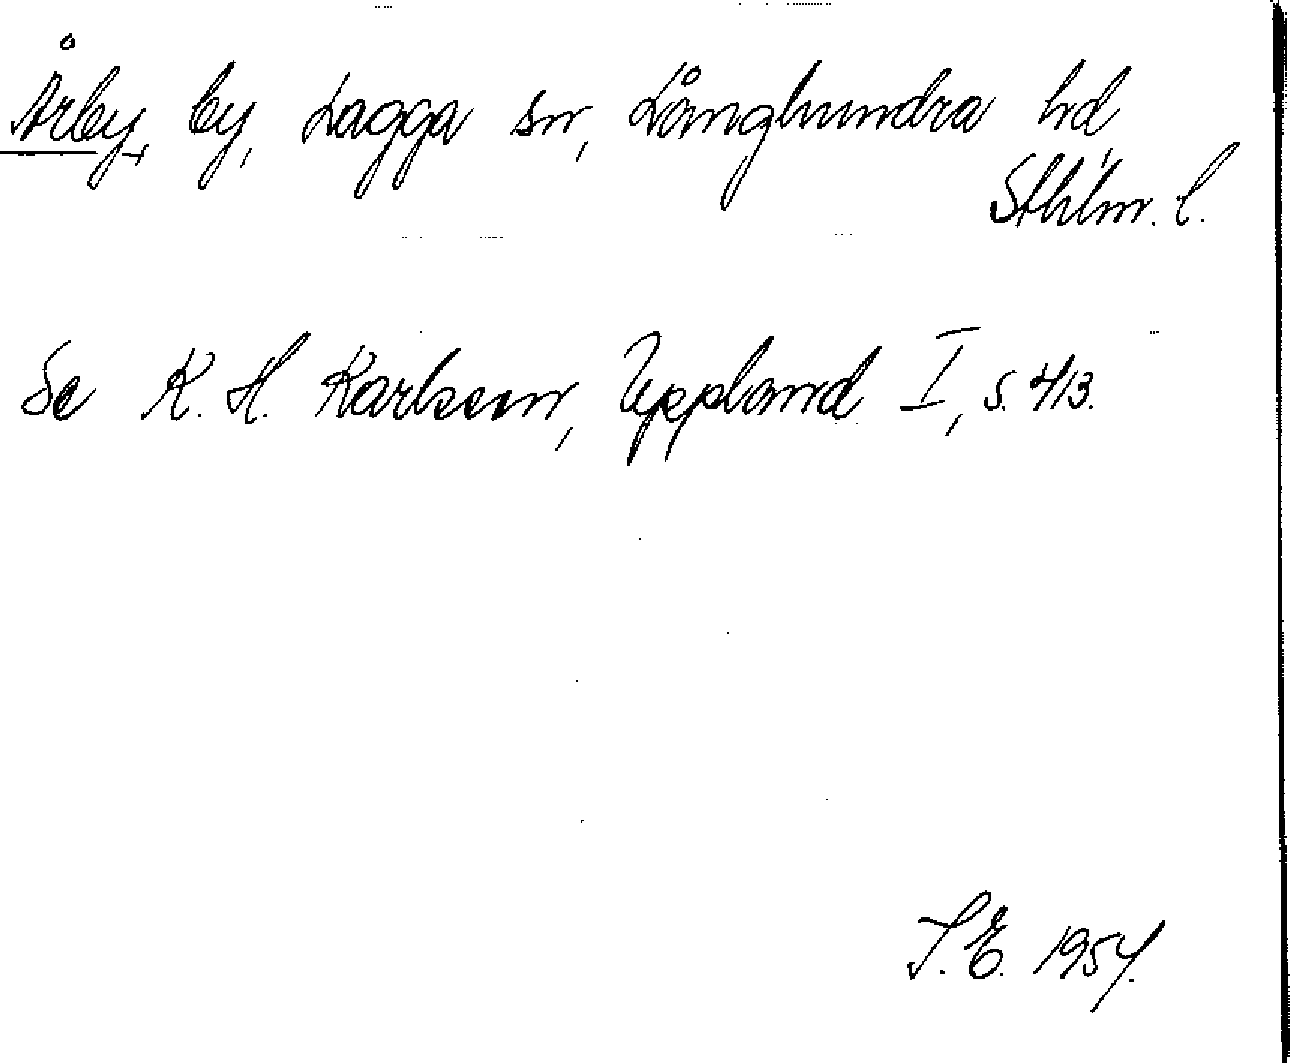 Årby, by, Lagga sn, Långhundra hd,
Sthlm. l.
Se K. H. Karlsson, Uppland I, s. 413.
S. E. 1954.